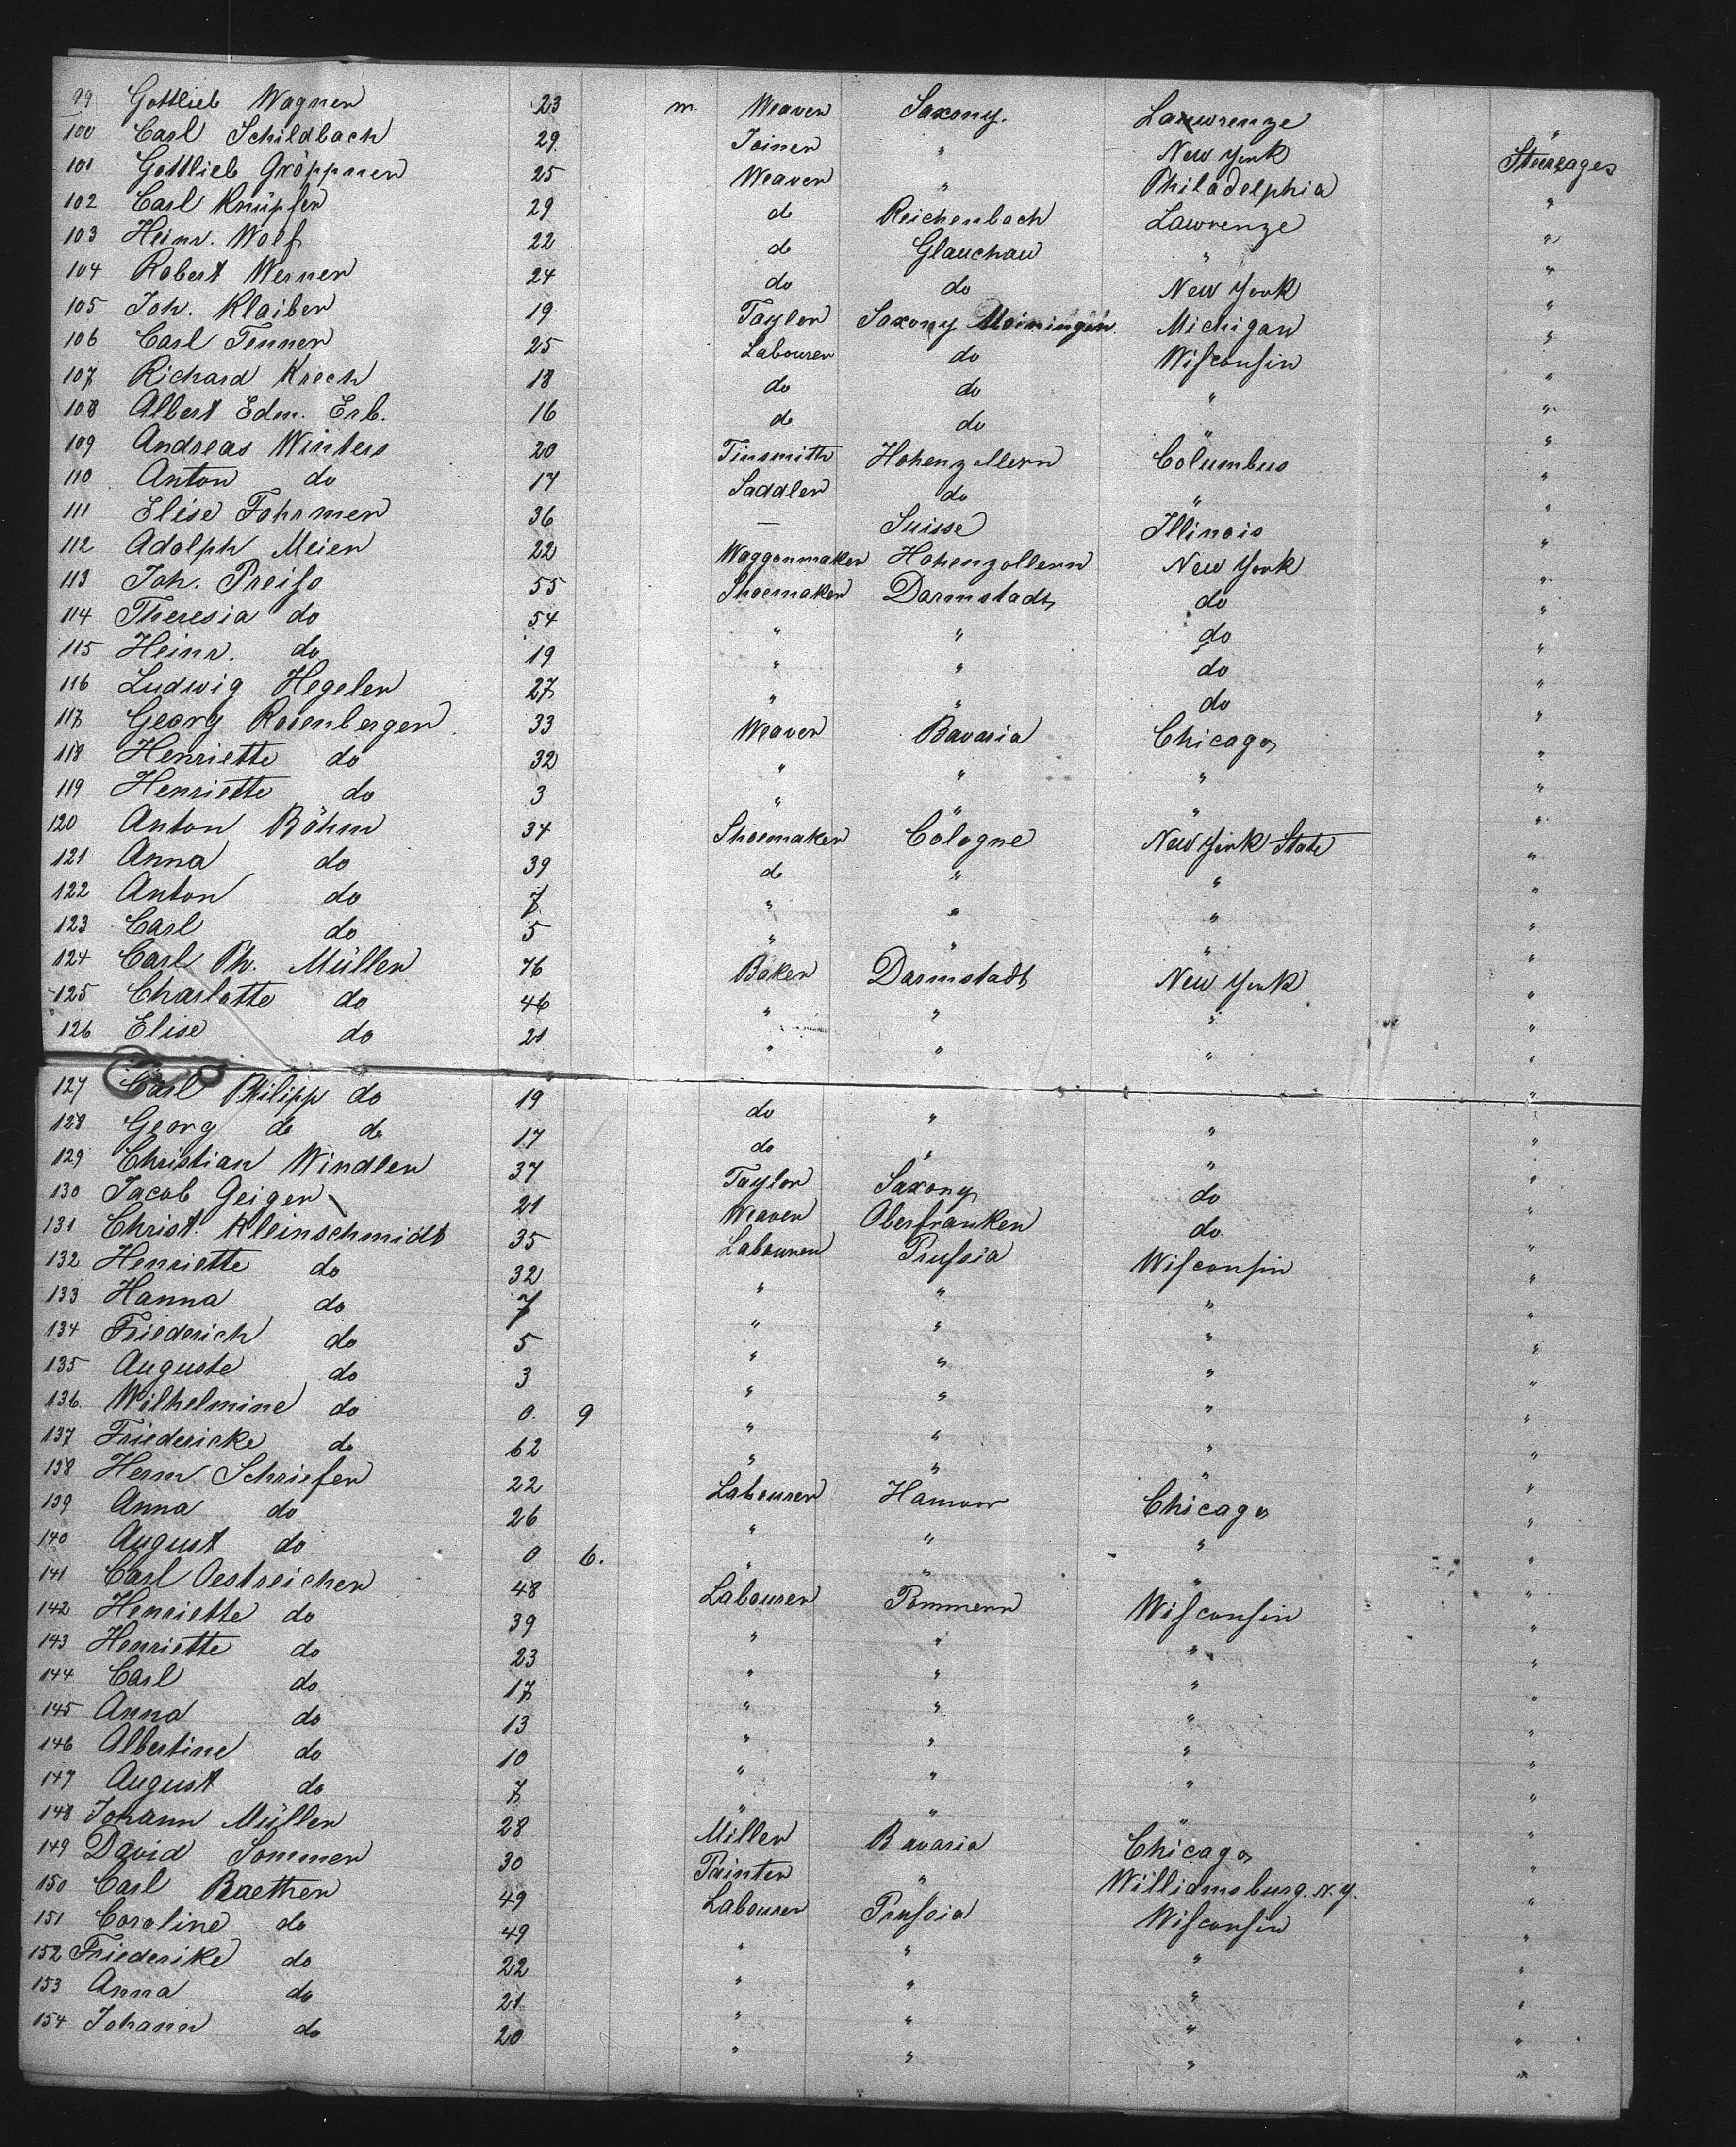 99 Gottlieb Wagner 23 m. Weaver Saxony. Lawrenze "
100 Carl Schildbach 29 Joiner " New York Steerages
101 Gottlieb Gröppner 25 Weaver " Philadelphia "
102 Carl Knüpfer 29 do Reichenbach Lawrenze "
103 Heinr. Wolf 22 do Glauchau " "
104 Robert Werner 24 do do New York "
105 Joh. Klaiber 19 Tayler Saxony Meiningen Michigan "
106 Carl Tenner 25 Labourer do Wisconsin "
107 Richard Krech 18 do do " "
108 Albert Edm. Erb. 16 do do " "
109 Andreas Winters 20 Tinsmith Hohenzollern Columbus "
110 Anton do 17 Saddler do " "
111 Elise Fohrmer 36 — Suisse Illinois "
112 Adolph Meier 22 Waggonmaker Hohenzollern New York "
113 Joh. Preiss 55 Shoemaker Darmstadt do "
114 Theresia do 54 " " do "
115 Heinr. do 19 " " do "
116 Ludwig Hegeler 27 " " do "
117 Georg Rosenberger 33 Weaver Bavaria Chicago "
118 Henriette do 32 " " " "
119 Henriette do 3 " " " "
120 Anton Böhm 34 Shoemaker Cologne New York State "
121 Anna do 39 do " " "
122 Anton do 7 " " " "
123 Carl do 5 " " " "
124 Carl Ph. Müller 46 Baker Darmstadt New York "
125 Charlotte do 46 " " " "
126 Elise do 21 " " " "
127 Carl Philipp do 19 do " " "
128 Georg do do 17 do " " "
129 Christian Windler 37 Taylor Saxony do "
130 Jacob Geiger 21 Weaver Oberfranken do "
131 Christ. Kleinschmidt 35 Labourer Prussia Wisconsin "
132 Henriette do 32 " " " "
133 Hanna do 7 " " " "
134 Friederich do 5 " " " "
135 Auguste do 3 " " " "
136. Wilhelmine do 0. 9 " " " "
137 Friedericke do 62 " " " "
138 Herm Schriefer 22 Labourer Hanover Chicago "
139 Anna do 26 " " " "
140 August do 0 6. " " " "
141 Carl Oestreicher 48 Labourer Pommern Wisconsin "
142 Henriette do 39 " " " "
143 Henriette do 23 " " " "
144 Carl do 17 " " " "
145 Anna do 13 " " " "
146 Albertine do 10 " " " "
147 August do 7 " " " "
148 Johann Müller 28 Miller Bavaria Chicago "
149 David Sommer 30 Painter " Williamsburg. N.Y. "
150 Carl Raether 49 Labourer Prussia Wisconsin "
151 Caroline do 49 " " " "
152 Friederike do 22 " " " "
153 Anna do 21 " " " "
154 Johann do 20 " " " "